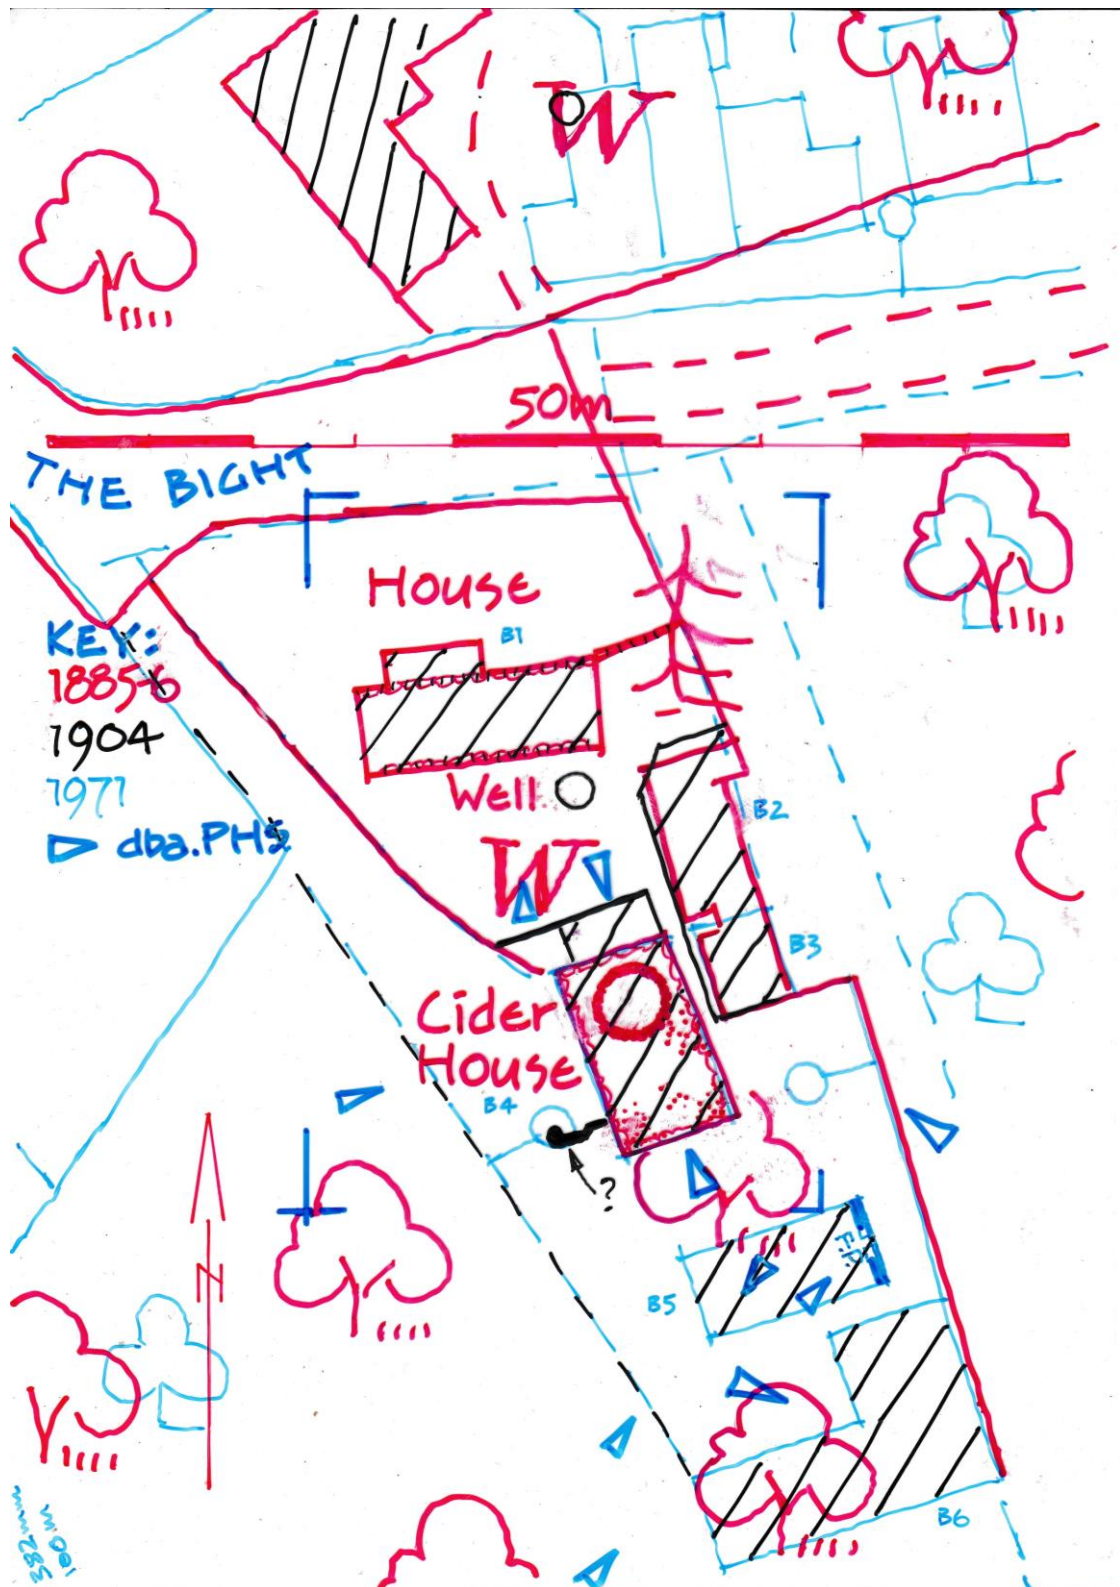 W
50m
THE BIGHT
House
B1
KEY:
1885-6
1904
1971
dba.PHS
Well
B2
W
B3
Cider
House
B4
?
N
F.P.
B5
B6
382mm
100m